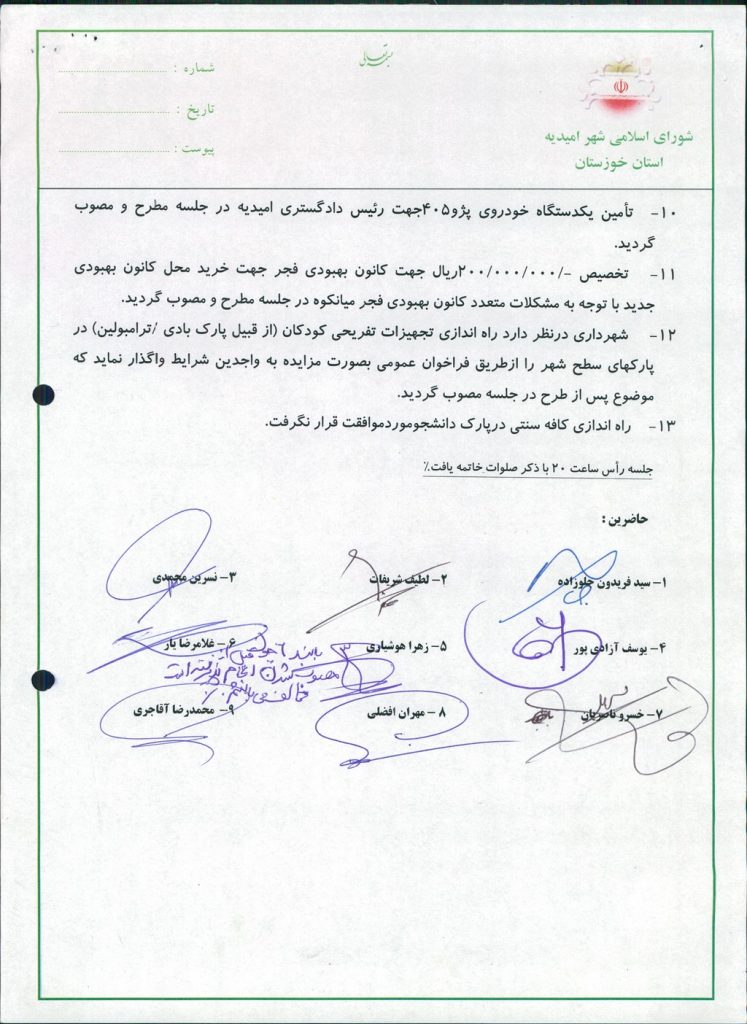 بسمه تعالی
شورای اسلامی شهر امیدیه
استان خوزستان
شماره :
تاریخ :
پیوست :
۱۰- تأمین یکدستگاه خودروی پژو۴۰۵جهت رئیس دادگستری امیدیه در جلسه مطرح و مصوب
گردید.
۱۱- تخصیص -/۲۰۰/۰۰۰/۰۰۰ریال جهت کانون بهبودی فجر جهت خرید محل کانون بهبودی
جدید با توجه به مشکلات متعدد کانون بهبودی فجر میانکوه در جلسه مطرح و مصوب گردید.
۱۲- شهرداری درنظر دارد راه اندازی تجهیزات تفریحی کودکان (از قبیل پارک بادی /ترامبولین) در
پارکهای سطح شهر را ازطریق فراخوان عمومی بصورت مزایده به واجدین شرایط واگذار نماید که
موضوع پس از طرح در جلسه مصوب گردید.
۱۳- راه اندازی کافه سنتی درپارک دانشجوموردموافقت قرار نگرفت.
جلسه رأس ساعت ۲۰ با ذکر صلوات خاتمه یافت٪
حاضرین :
۱- سید فریدون جلوزاده ۲- لطیف شریفات ۳- نسرین محمدی
۴- یوسف آزادی پور ۵- زهرا هوشیاری ۶- غلامرضا یار
با بند ۶ چون قبل از
مصوب شدن انجام پذیرفته است
مخالف می باشم
۷- خسرو ناصریان ۸- مهران افضلی ۹- محمدرضا آقاجری